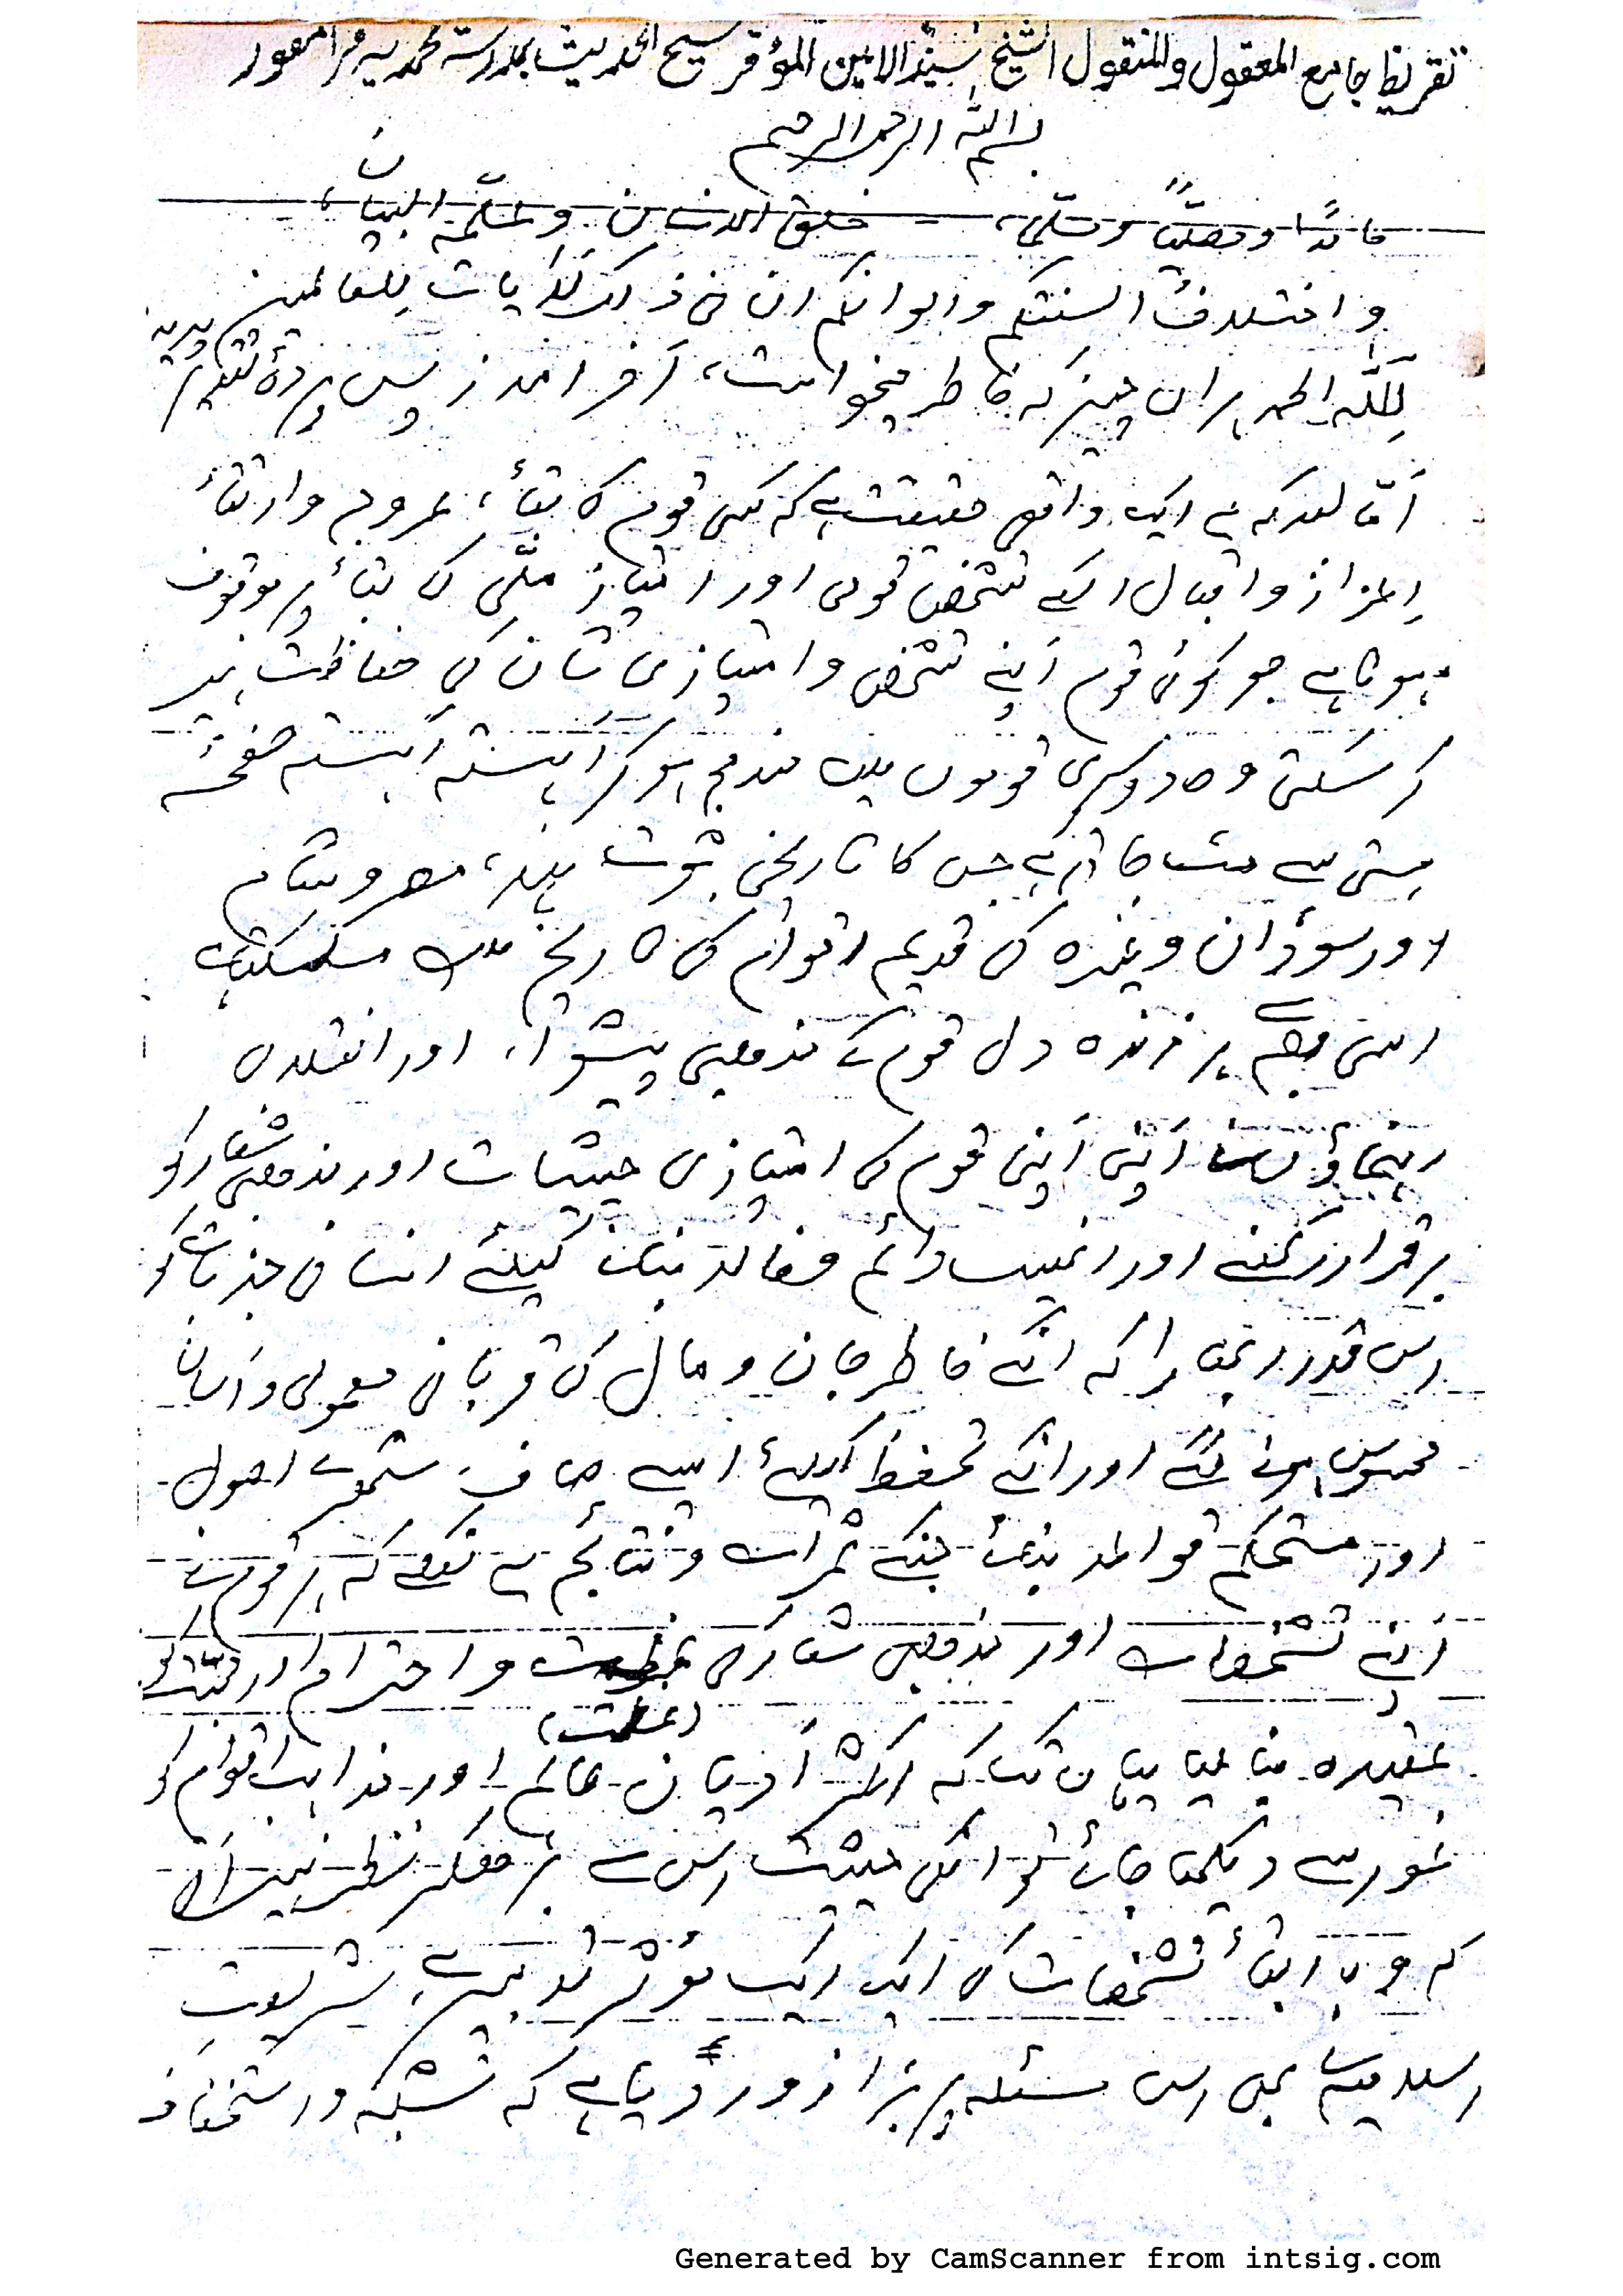 تقریظ جامع المعقول والمنقول الشیخ سید الامین المؤقر شیخ الحدیث بمدرسۃ محمدیہ
بسم اللہ الرحمن الرحیم
حامدًا ومصلّیًا ومسلّمًا، خلق الانسان وعلّمہ البیانَ،
واختلافُ السنتکم والوانکم ان فی ذلک لَاٰیات للعالمین
لِلّٰہ الحمد ہر آں چیز کہ خاطر میخواست، آخر آمد ز پس پردۂ تقدیر پدید
اَمّا بعد کہ یہ ایک واقعی حقیقت ہے کہ کسی قوم کا بقأ، عروج وارتقأ
اِعزاز واقبال اسکے تشخص قومی اور امتیاز ملّی کی بقأ پر موقوف
ہوتا ہے جو کوئی قوم اَپنے تشخص وامتیازی شان کی حفاظت نہیں
کرسکتی وہ دوسری قوموں میں مندمج ہوکر آہستہ آہستہ صفحۂ
ہستی سے مٹ جاتی ہے جس کا تاریخی ثبوت ہند، مصر وشام
اور سوڈان وغیرہ کی قدیم اقوام کی تاریخ میں مل سکتا ہے
اسی وجہ سے ہر زندہ دل قوم کے مذھبی پیشوا، اور انقلابی
رہنماؤں نے اَپنی اَپنی قوم کی امتیازی حیثیات اور مذھبی شعار کو
برقرار رکھنے اور انھیں دائم وخالد بنانے کیلئے انسانی جذبات کو
اس قدر ابھارا کہ انکے خاطر جان ومال کی قربانی معمولی و آسان
محسوس ہونے لگے اور انکے تحفظ کیلئے ایسے صاف ستھرے اصول
اور مستحکم قواعد بنائے جنکے ثمرات ونتائج یہ نکلے کہ ہر قوم نے
اَپنے تشخصات اور مذھبی شعار کی عظمت واحترام اور محبّت کو
(عظمت)
عقیدہ بنا لیا یہاں تک کہ اکثر اَدیان عالم اور مذاہب اقوام کو
غور سے دیکھا جائے تو انکی حیثیت اس سے بڑھکر نظر نہیں آتی
کہ وہ بقأ تشخصات کی ایک ایک مؤثر تدبیر ہے، شریعتِ
اسلامیہ نے بھی اس مسئلہ پر بڑا زور دیا ہے کہ تشبّہ واستخفاف
Generated by CamScanner from intsig.com